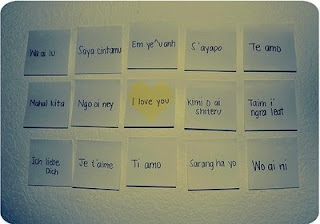 Wo ai iu
Saya cintamu
Em ye^u anh
S'ayapo
Te amo
Mahal kita
Ngo oi ney
I love you
Kimi o ai
shiteru
Taim i'
ngra leat
Ich liebe
Dich
Je t'aime
Ti amo
Sarang ha yo
Wo ai ni